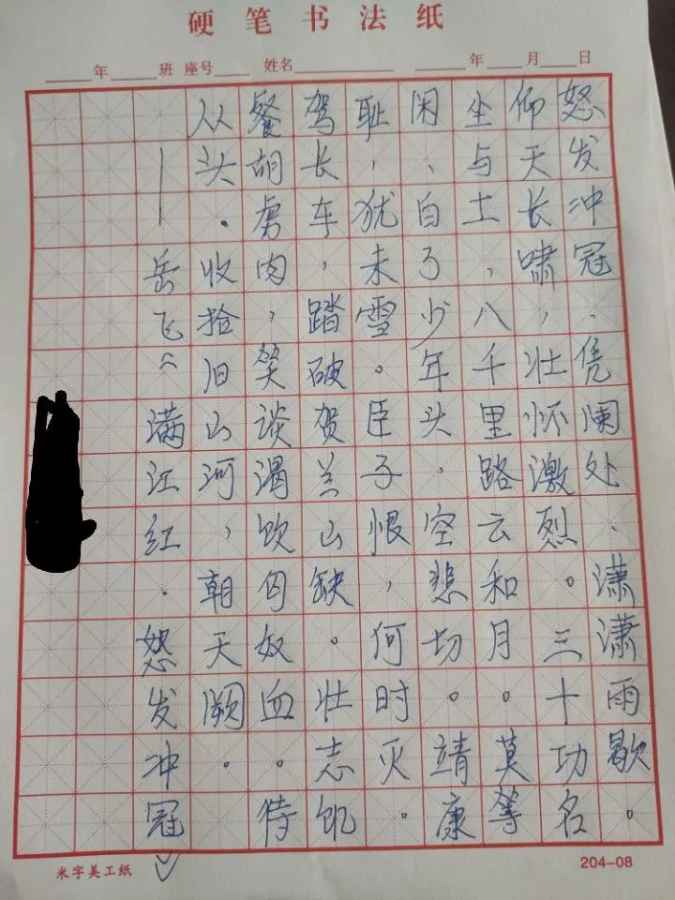 硬笔书法纸
年 班 座号 姓名 年 月 日
怒发冲冠、凭澜处、潇潇雨歇。
仰天长啸，壮怀激烈。三十功名
坐与土，八千里路云和月。莫等
闲、白了少年头，空悲切。靖康
耻，犹未雪。臣子恨，何时灭。
驾长车，踏破贺兰山缺。壮志饥
餐胡虏肉，笑谈渴饮匈奴血。待
从头.收拾旧山河，朝天阙。
——岳飞《满江红.怒发冲冠》
米字美工纸
204-08